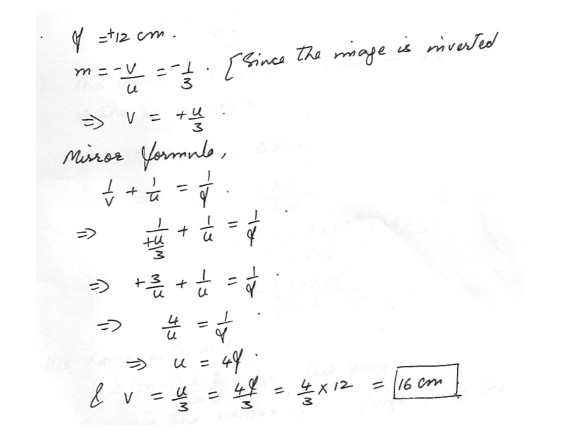 f = +12 cm.
m = -v/u = -1/3 . [Since the image is inverted
=> v = +u/3 .
Mirror formula,
1/v + 1/u = 1/f .
=> 1/(+u/3) + 1/u = 1/f .
=> +3/u + 1/u = 1/f .
=> 4/u = 1/f .
=> u = 4f .
& v = u/3 = 4f/3 = 4/3 × 12 = 16 cm